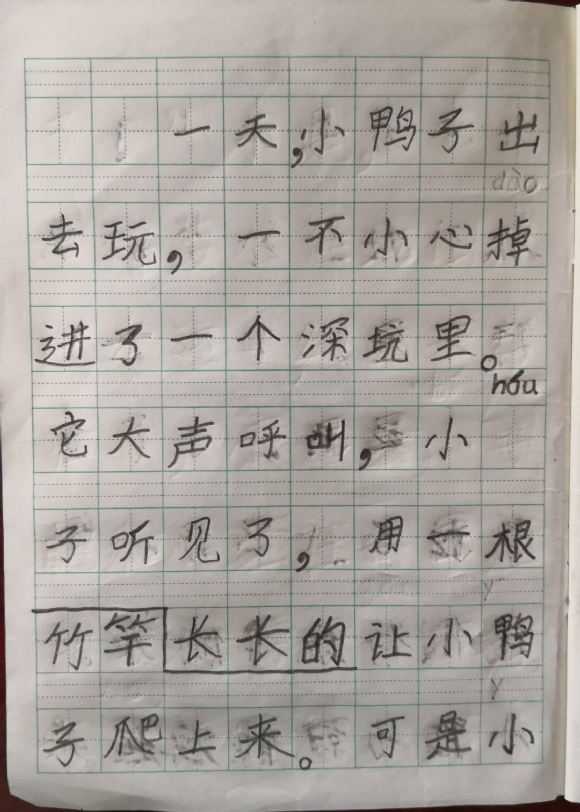 一天,小鸭子出
dào
去玩,一不小心掉
进了一个深坑里。
hóu
它大声呼叫,小
子听见了,用一根
竹竿长长的让小鸭
子爬上来。可是小